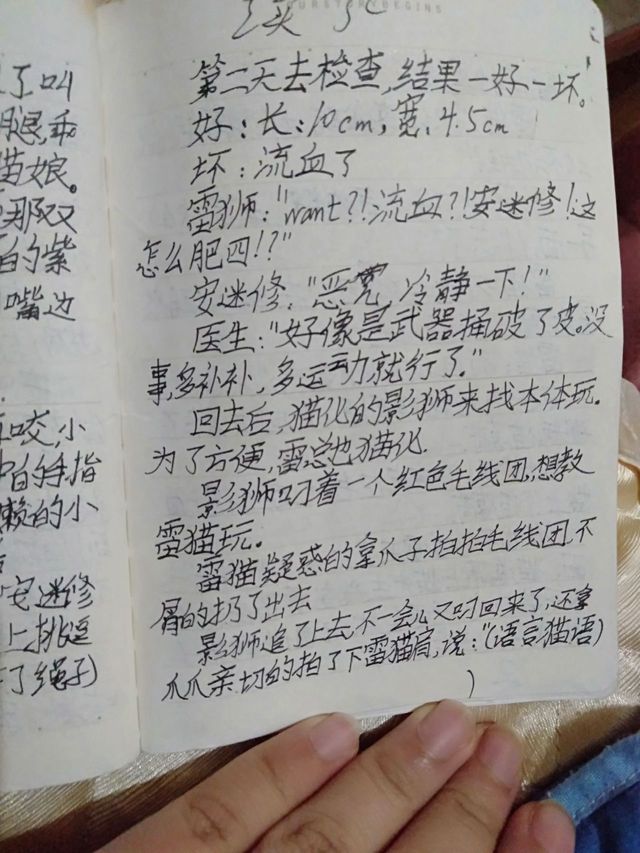 了叫
腿,乖
猫娘。
那双
的紫
嘴边
咬,小
的手指
懒的小
安迷修
上,挑逗
了绳子)
BEGINS
第二天去检查,结果一好一坏。
好:长:10cm,宽:4.5cm
坏:流血了
雷狮:"want?!流血?!安迷修!这
怎么肥四!?"
安迷修:"恶党,冷静一下!"
医生:"好像是武器捅破了皮。没
事,多补补,多运动就行了。"
回去后,猫化的影狮来找本体玩。
为了方便,雷总也猫化.
影狮叼着一个红色毛线团,想教
雷猫玩。
雷猫疑惑的拿爪子拍拍毛线团,不
屑的扔了出去
影狮追了上去,不一会儿又叼回来了,还拿
爪爪亲切的拍了下雷猫肩,说:"(语言猫语)